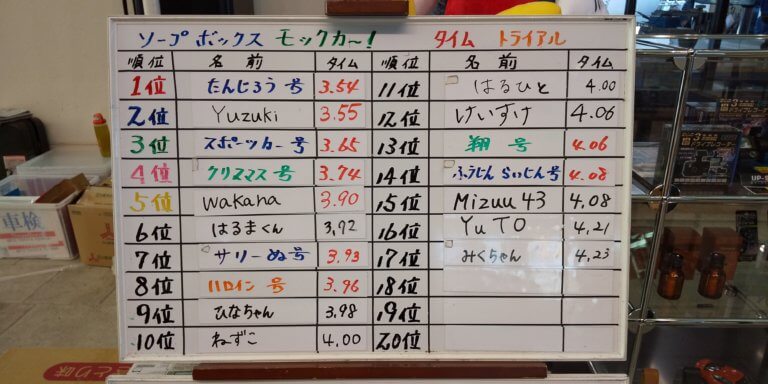 ソープボックス モックカー! タイム トライアル
順位 名前 タイム
1位 たんじろう号 3.54
2位 Yuzuki 3.55
3位 スポーツカー号 3.65
4位 クリスマス号 3.74
5位 wakana 3.90
6位 はるまくん 3.92
7位 サリーぬ号 3.93
8位 ハロイン号 3.96
9位 ひなちゃん 3.98
10位 ねずこ 4.00
順位 名前 タイム
11位 はるひと 4.00
12位 けいすけ 4.06
13位 翔号 4.06
14位 ふうじんらいじん号 4.08
15位 Mizuu 43 4.08
16位 YuTO 4.21
17位 みくちゃん 4.23
18位
19位
20位
車検